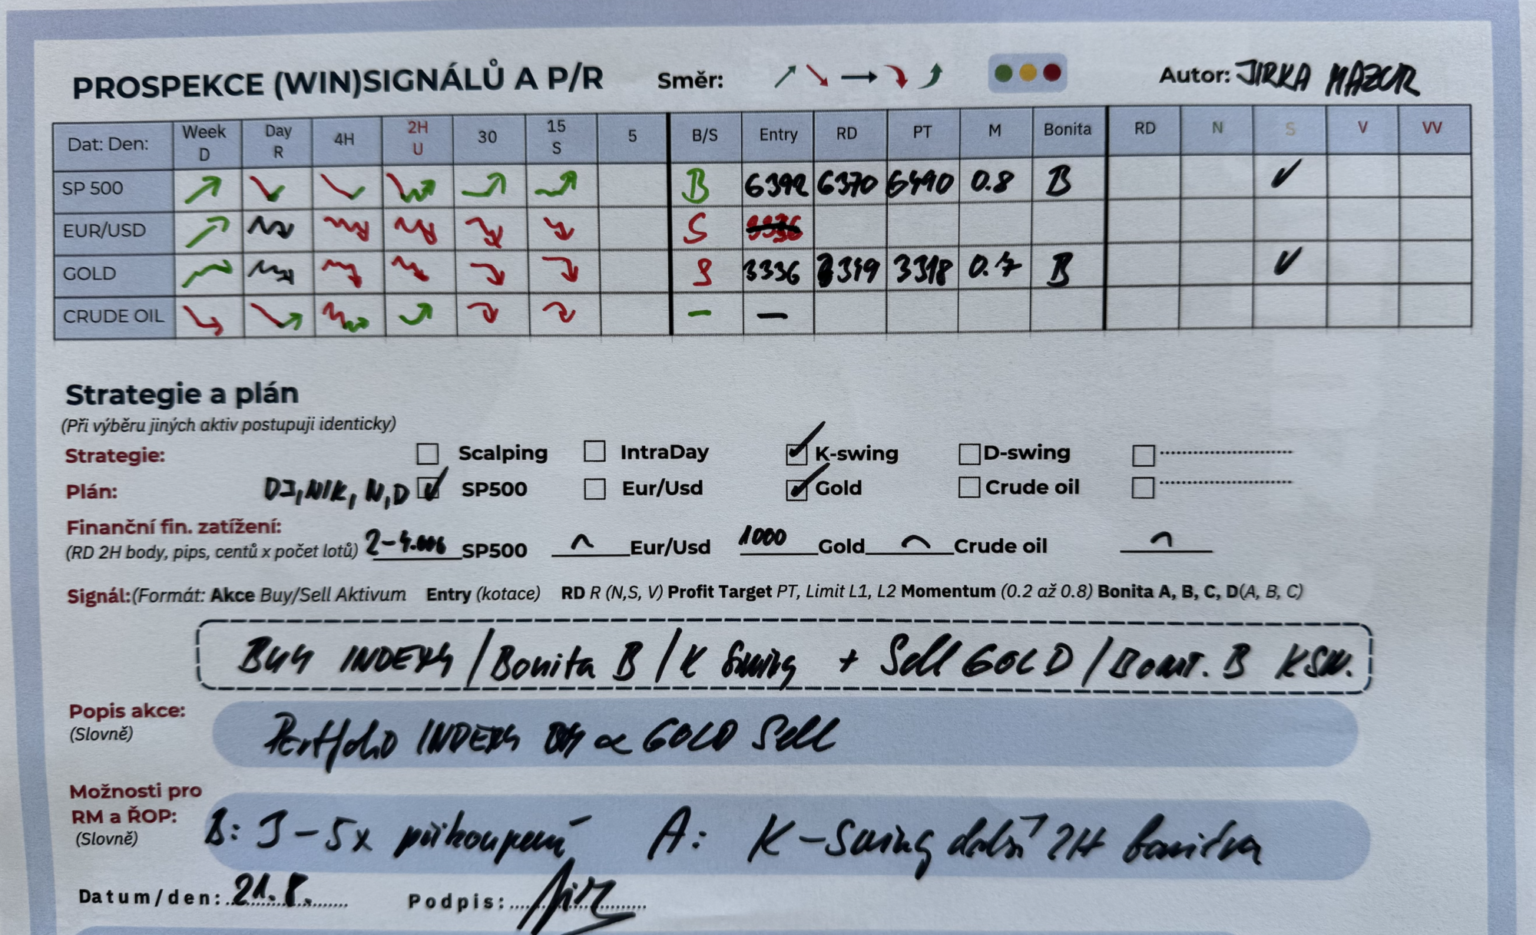 PROSPEKCE (WIN)SIGNÁLŮ A P/R Směr: Autor: JIRKA MAZUR
Dat: Den: Week D Day R 4H 2H U 30 15 S 5 B/S Entry RD PT M Bonita RD N S V VV
SP 500 B 6392 6370 6490 0.8 B ✓
EUR/USD S 3336
GOLD S 3336 3319 0.7 B ✓
CRUDE OIL – –
Strategie a plán
(Při výběru jiných aktiv postupuji identicky)
Strategie: Scalping IntraDay ✓ K-swing D-swing
Plán: DJ, NIK, N, D ✓ SP500 Eur/Usd ✓ Gold Crude oil
Finanční fin. zatížení:
(RD 2H body, pips, centů x počet lotů) SP500 Eur/Usd 1000 Gold Crude oil
Signál:(Formát: Akce Buy/Sell Aktivum Entry (kotace) RD R (N,S, V) Profit Target PT, Limit L1, L2 Momentum (0.2 až 0.8) Bonita A, B, C, D(A, B, C)
BUY INDEXY / Bonita B / K Swing + Sell GOLD / Bonit. B KSW.
Popis akce: Portfolio INDEXY GOLD Sell
(Slovně)
Možnosti pro
RM a ŘOP: B: 3-5x přikoupení A: K-Swing další 2H
(Slovně)
Datum/den: 21.8. Podpis: